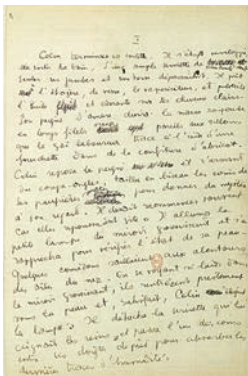 I
Colin terminait sa toilette. Il s'était enveloppé
au sortir du bain, d'une ample serviette de
seules ses jambes et son torse dépassaient. Il prit
à l'étagère, de verre, le vaporisateur et pulvérisa
l'huile et odorante sur ses cheveux clairs.
Son peigne d'ambre divisa la masse soyeuse
en longs filets orange pareils aux sillons
que le gai laboureur trace à l'aide d'une
fourchette dans de la confiture d'abricots.
Colin reposa le peigne et s'armant
du coupe-ongles, tailla en biseau les coins de
ses paupières pour donner du mystère
à son regard. Il devait recommencer souvent
car elles repoussaient vite. Il alluma la
petite lampe du miroir grossissant et s'en
rapprocha pour vérifier l'état de sa peau.
Quelques comédons saillaient aux alentours
des ailes du nez. En se voyant si laids dans
le miroir grossissant, ils rentrèrent prestement
sous la peau et, satisfait, Colin éteignit
la lampe. Il détacha la serviette qui lui
ceignait les reins et passa l'un des coins
entre ses doigts de pied pour absorber les
dernières traces d'humidité.